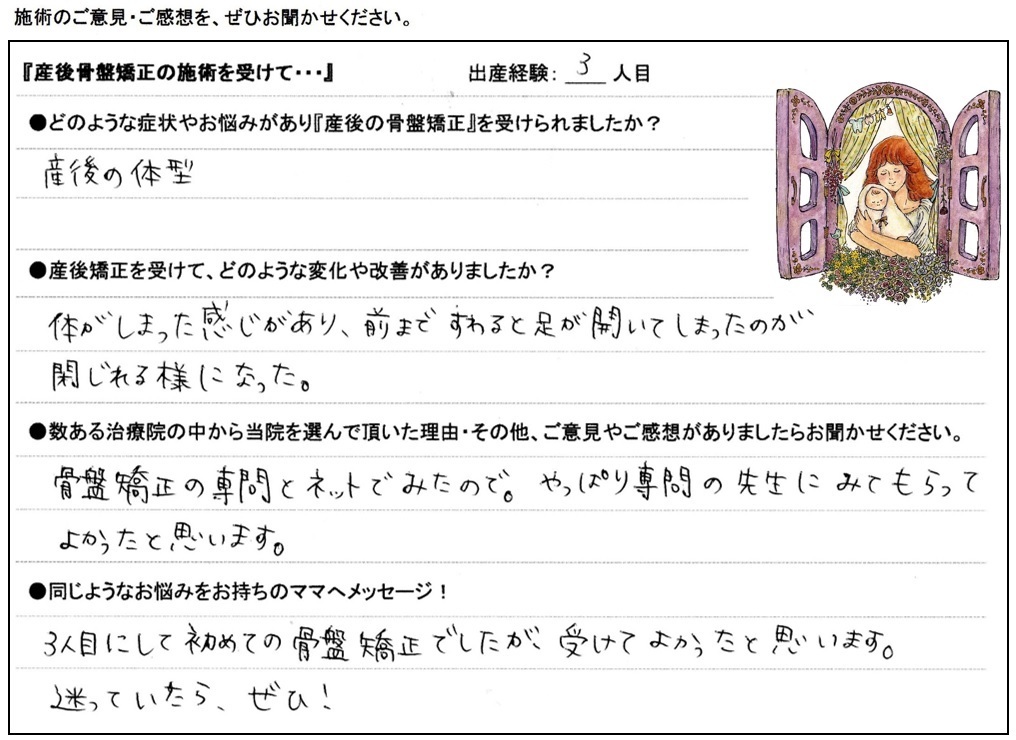 施術のご意見・ご感想を、ぜひお聞かせください。
『産後骨盤矯正の施術を受けて・・・』 出産経験: 3 人目
●どのような症状やお悩みがあり『産後の骨盤矯正』を受けられましたか？
産後の体型
●産後矯正を受けて、どのような変化や改善がありましたか？
体がしまった感じがあり、前まですわると足が開いてしまったのが
閉じれる様になった。
●数ある治療院の中から当院を選んで頂いた理由・その他、ご意見やご感想がありましたらお聞かせください。
骨盤矯正の専問とネットでみたので。やっぱり専問の先生にみてもらって
よかったと思います。
●同じようなお悩みをお持ちのママへメッセージ！
3人目にして初めての骨盤矯正でしたが、受けてよかったと思います。
迷っていたら、ぜひ！